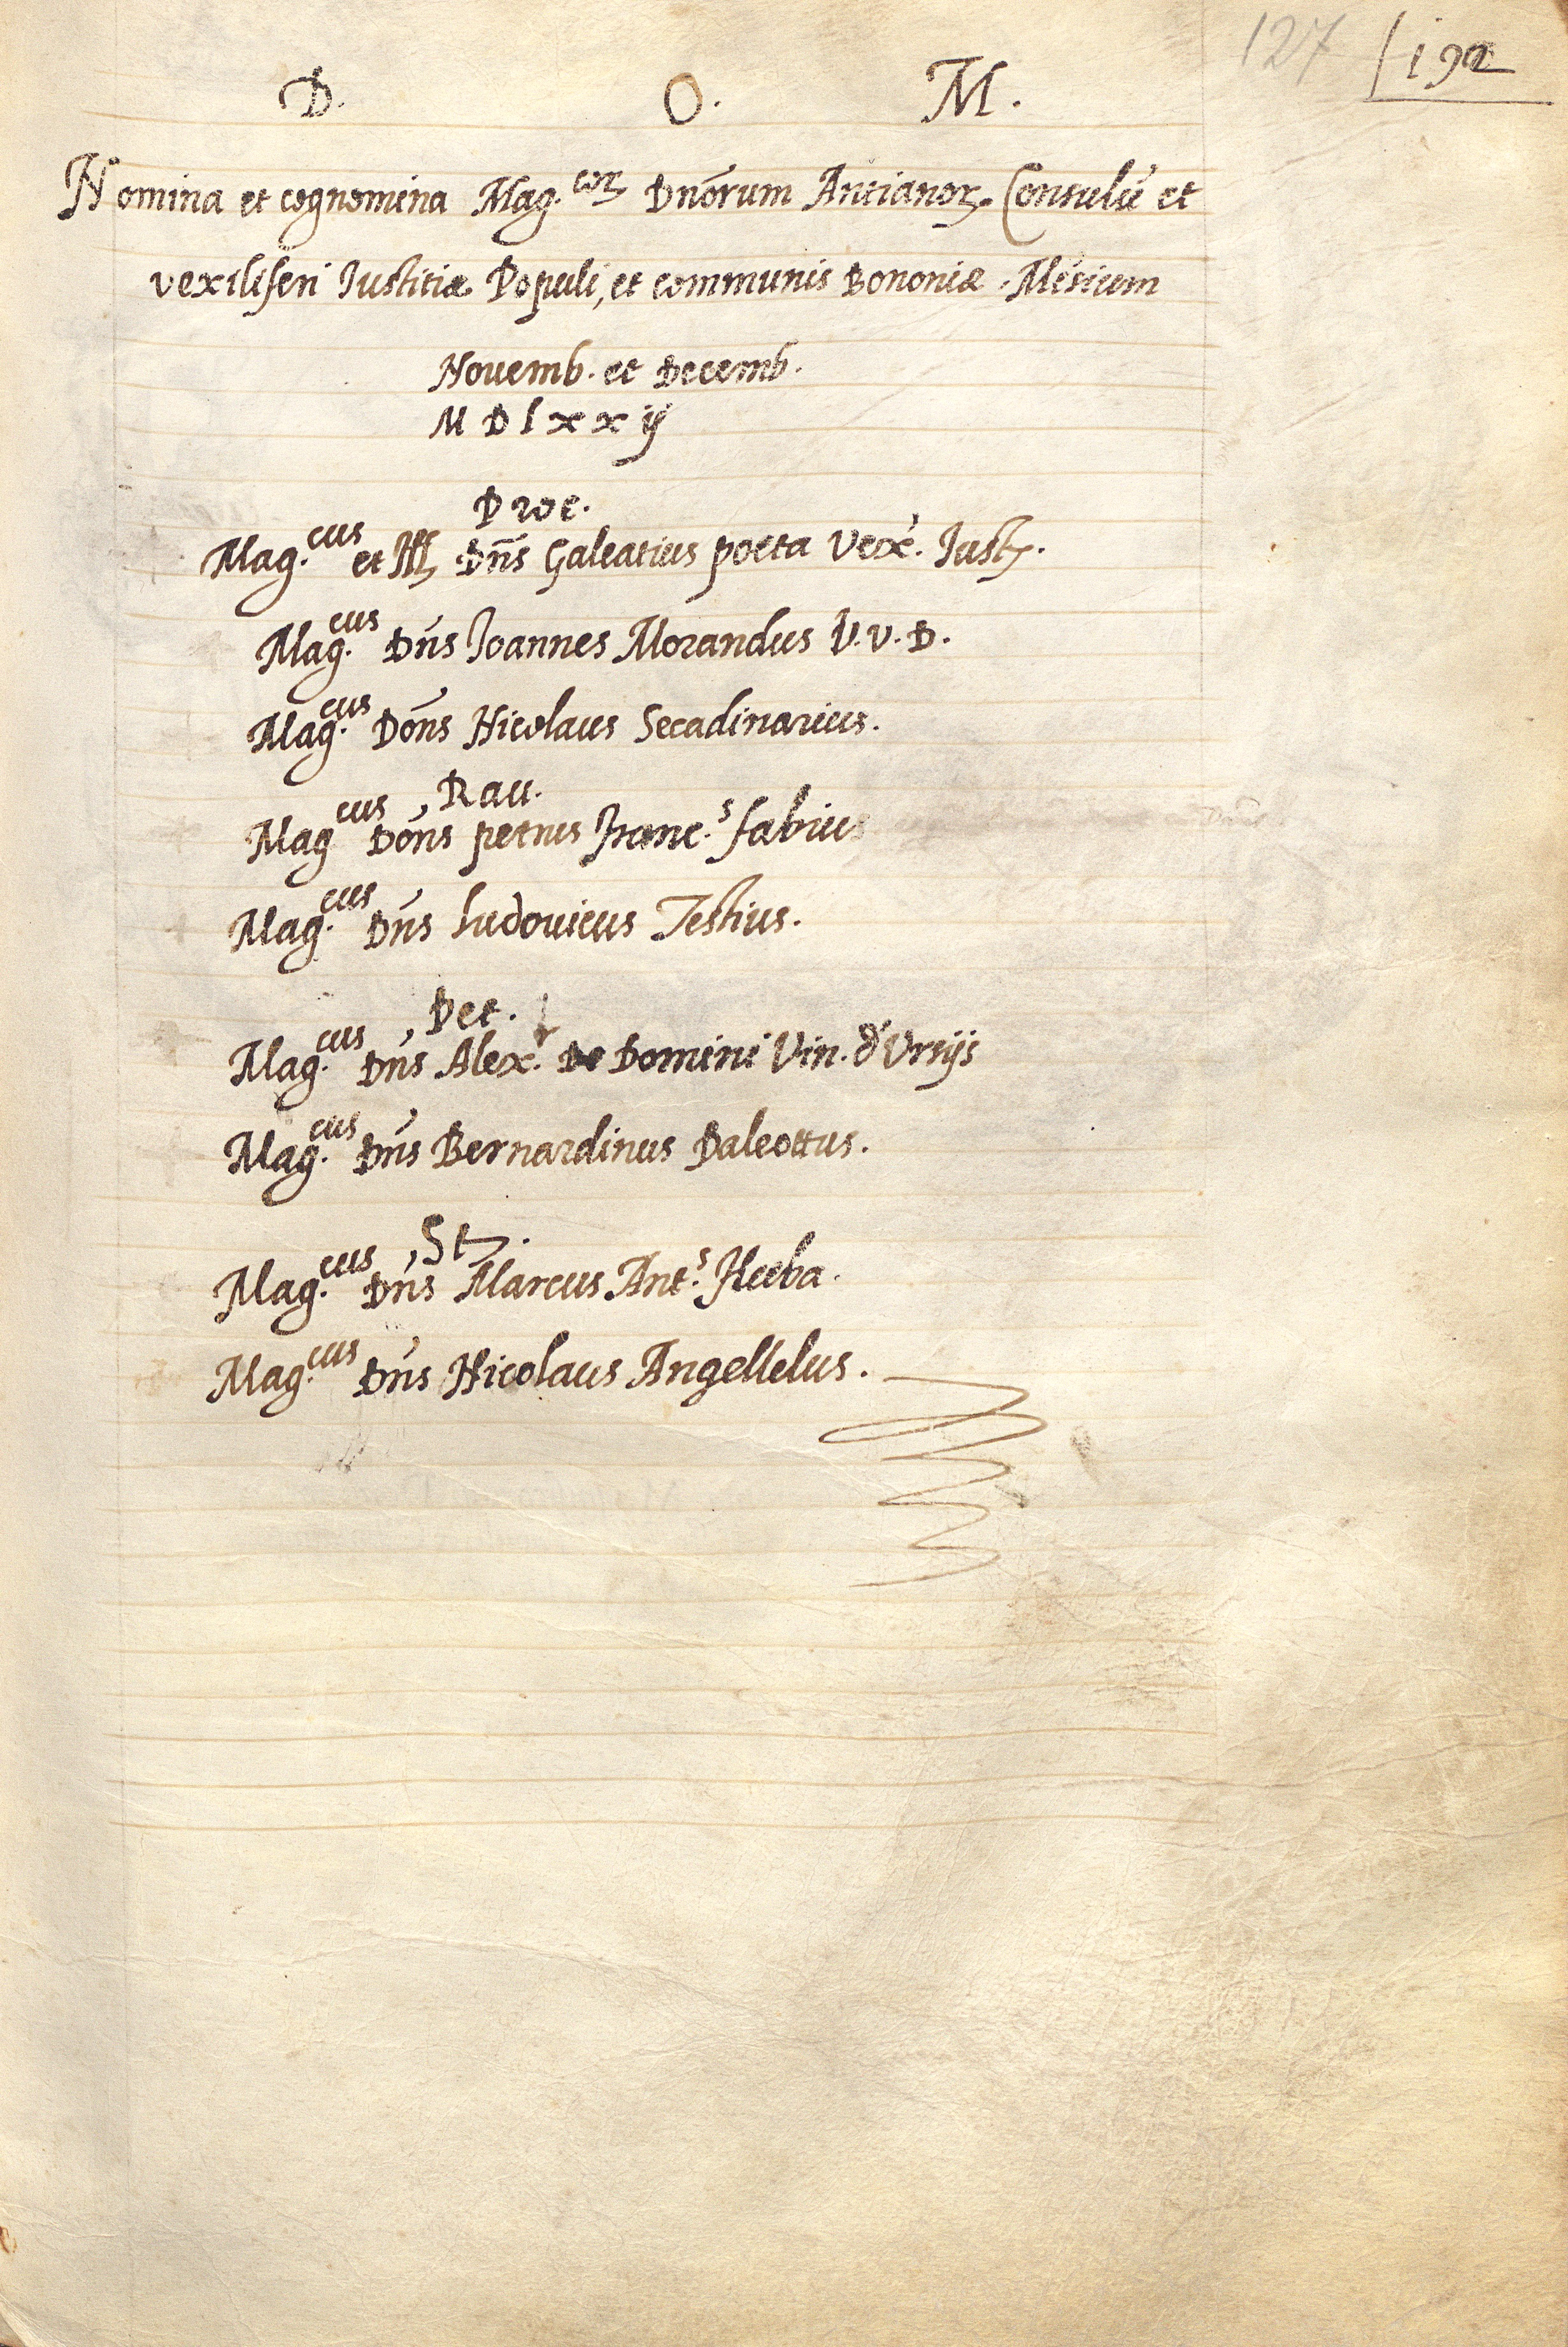 127 192
D. O. M.
Nomina et cognomina Mag.corꝝ Dnōrum Antianorꝝ. Consulū et
vexiliferi Iustitiæ Populi, et communis Bononiæ. Mēsium
Nouemb. et Decemb.
M D l x x ij
Proc.
Mag.cus et Ill. Dn̄s Galeatius poeta Vex. Iust.
Mag.cus Dn̄s Ioannes Morandus V. V. D.
Mag.cus Don̄s Nicolaus Secadinarius.
Rau.
Mag cus Don̄s petrus Franc.s fabius
Mag.cus Dn̄s ludouicus Testius.
Pet.
Mag.cus Dn̄s Alex.r De Domini Vin. d' Vrsijs
Mag.cus Dn̄s Bernardinus Paleottus.
St.
Mag.cus Dn̄s Marcus Ant.s Herba.
Mag.cus Dn̄s Nicolaus Angellelus.